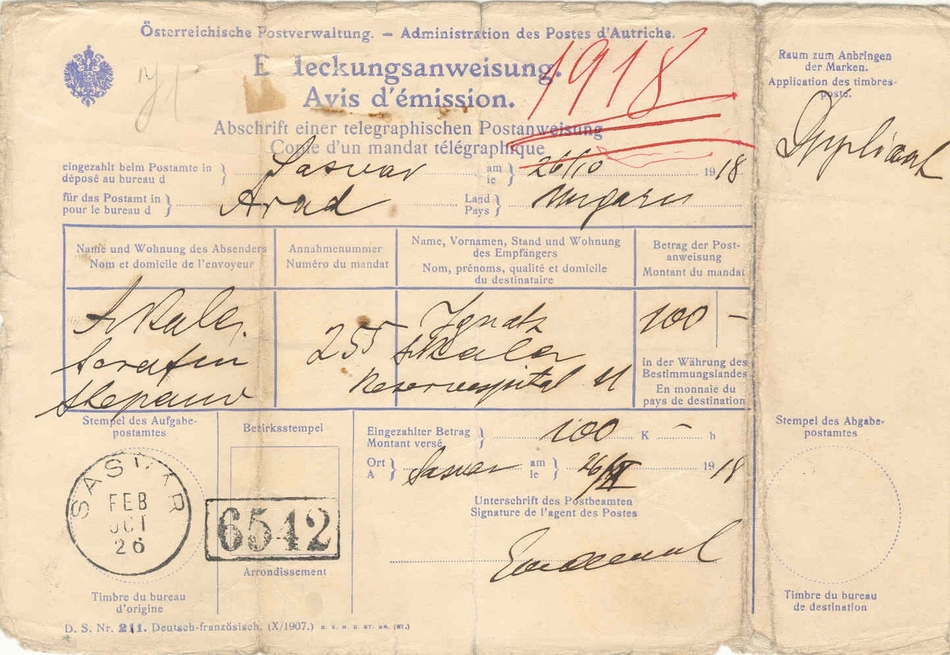 Österreichische Postverwaltung. — Administration des Postes d'Autriche.
leckungsanweisung.
1918
Avis d'émission.
Abschrift einer telegraphischen Postanweisung
Copie d'un mandat télégraphique
Raum zum Anbringen
der Marken.
Application des timbres-
poste.
eingezahlt beim Postamte in
déposé au bureau d
Sasvar
am
le
26/10
1918
für das Postamt in
pour le bureau d
Arad
Land
Pays
Ungarn
Name und Wohnung des Absenders
Nom et domicile de l'envoyeur
Annahmenummer
Numéro du mandat
Name, Vornamen, Stand und Wohnung
des Empfängers
Nom, prénoms, qualité et domicile
du destinataire
Betrag der Post-
anweisung
Montant du mandat
Serafin
255
Ignatz
Skaler
Reservespital 11
100 –
in der Währung des
Bestimmungslandes
En monnaie du
pays de destination
Stempel des Aufgabe-
postamtes
SASVAR
FEB
OCT
26
Timbre du bureau
d'origine
Bezirksstempel
6542
Arrondissement
Eingezahlter Betrag
Montant versé
100 K – h
Ort
A
Sasvar
am
le
1918
Unterschrift des Postbeamten
Signature de l'agent des Postes
Stempel des Abgabe-
postamtes
Timbre du bureau
de destination
D. S. Nr. 211. Deutsch-französisch. (X/1907.)